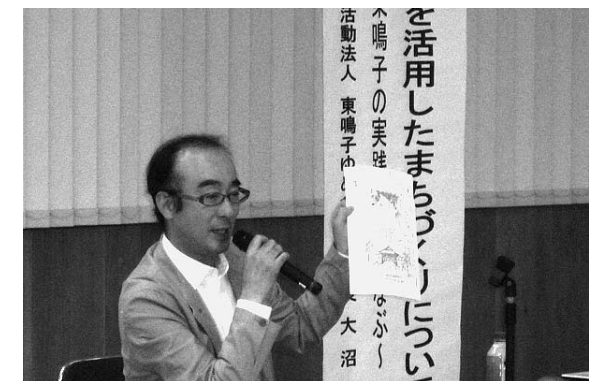 を活用したまちづくりについて
鳴子の実践 なぶ〜
活動法人 東鳴子ゆめ 大沼